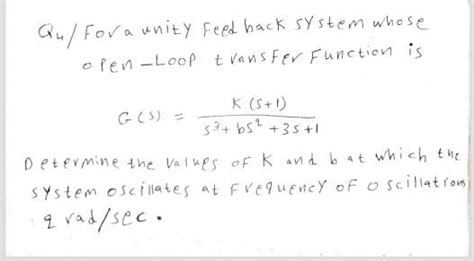 Q4/ For a unity Feed back system whose
open-Loop transfer Function is
G(S) = K (S+1) / S³+ bS² +3S+1
Determine the values of K and b at which the
system oscillates at Frequency of oscillations
2 rad/sec.